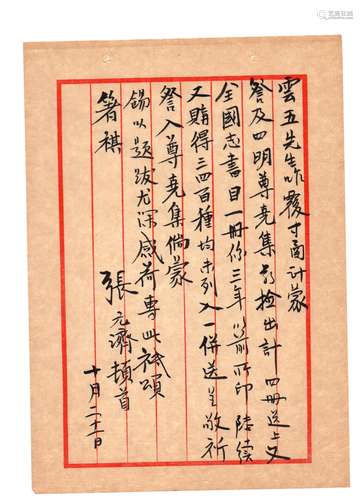 雲五先生昨覆寸函計蒙
詧及四明尊堯集乃檢出計四冊送上又
全國志書目一冊係三年以前所印陸續
又購得三四百種均未列入一併送呈敬祈
詧入尊堯集倘蒙
錫以題跋尤深感荷專此祗頌
箸祺
張元濟頓首
十月二十一日